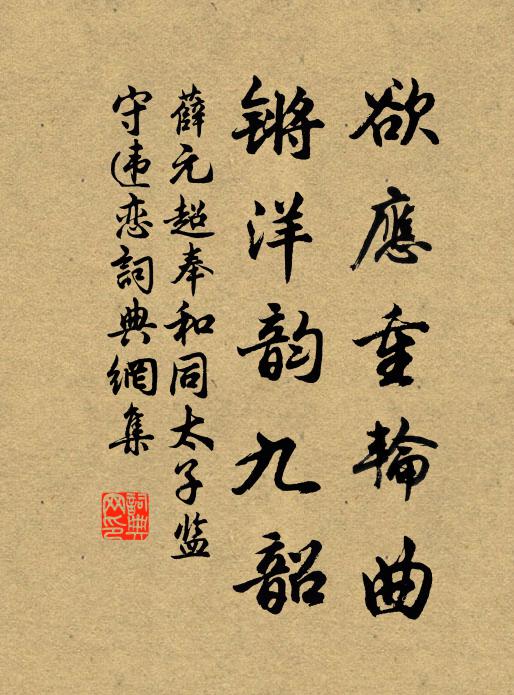 欲應重輪曲
锵洋韵九韶
薛元超奉和同太子监
守违恋詞典網集
詞典網印